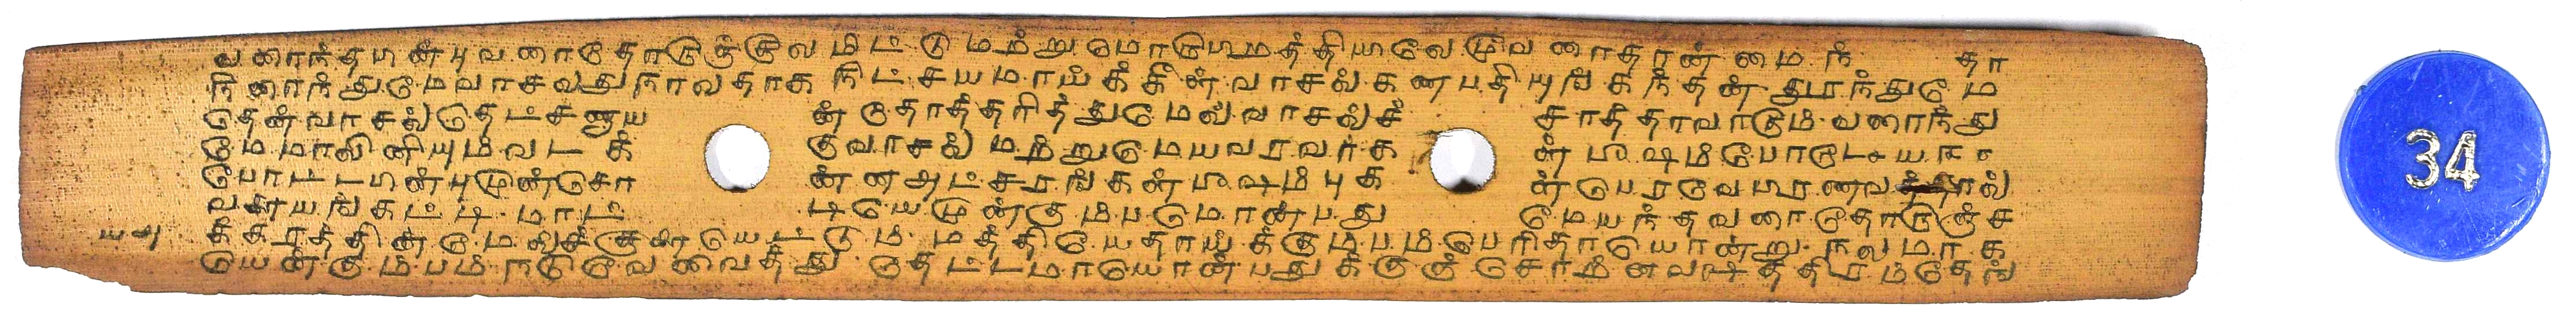 வளைந்தபின்புவளைதோருஞ்சூலமிட்டுமற்றுமொருபுறத்தியுலவேமூவளைதான் மைந் தா
நினைந்துமேவாசலதுநாலதாக நிட்சயமாய்க் கீன்வாசல்கணபதியுங்கந்தன் துரந்துமே
தென்வாசல்தெட்சணாய ன் குதாத்தரித்துமேல்வாசல்ச் சாத்தாவாகும் வளைந்து
மேமாலினியும்வடக் குவாசல் மற்றுமேயவரவர்க ள் பூஷம்போடேசயாக
போட்டபின்புமூன்சொ ன்னஅட்சரங்கள்பூஷம்புக ள்பெரவேபூரணவ ால்
வளையங்கட்டி மாட் டியேமூன்கும்பமொன்பது மேயந்தவளைதோருஞ்ச
க்கரத்தின்மேல்ச்சூள்யெட்டும் மத்தியேதாய்க்கும்பம்பெரிதாயொன்று நலமாக
யென்கும்பம்நடுவேவைத்து தெட்டமாயொன்பதுக்குஞ் சொற்னவஷத்திரம்தேங்
34